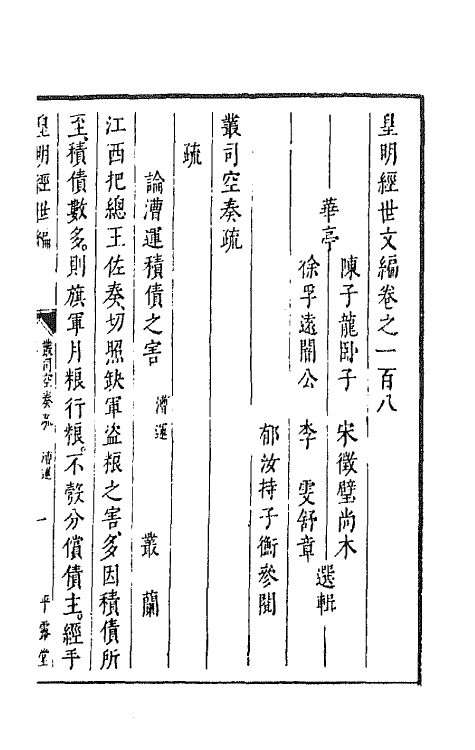 皇明經世文編卷之一百八
華亭
陳子龍卧子 宋徵璧尚木
徐孚遠闇公 李 雯舒章
選輯
郁汝持子衡參閱
叢司空奏疏
疏
論漕運積債之害 漕運 叢 蘭
江西把總王佐奏切照缺軍盗粮之害多因積債所
至積債數多則旗軍月粮行粮不彀分償債主經手
皇明經世編 叢司空奏疏 漕運 一 平露堂